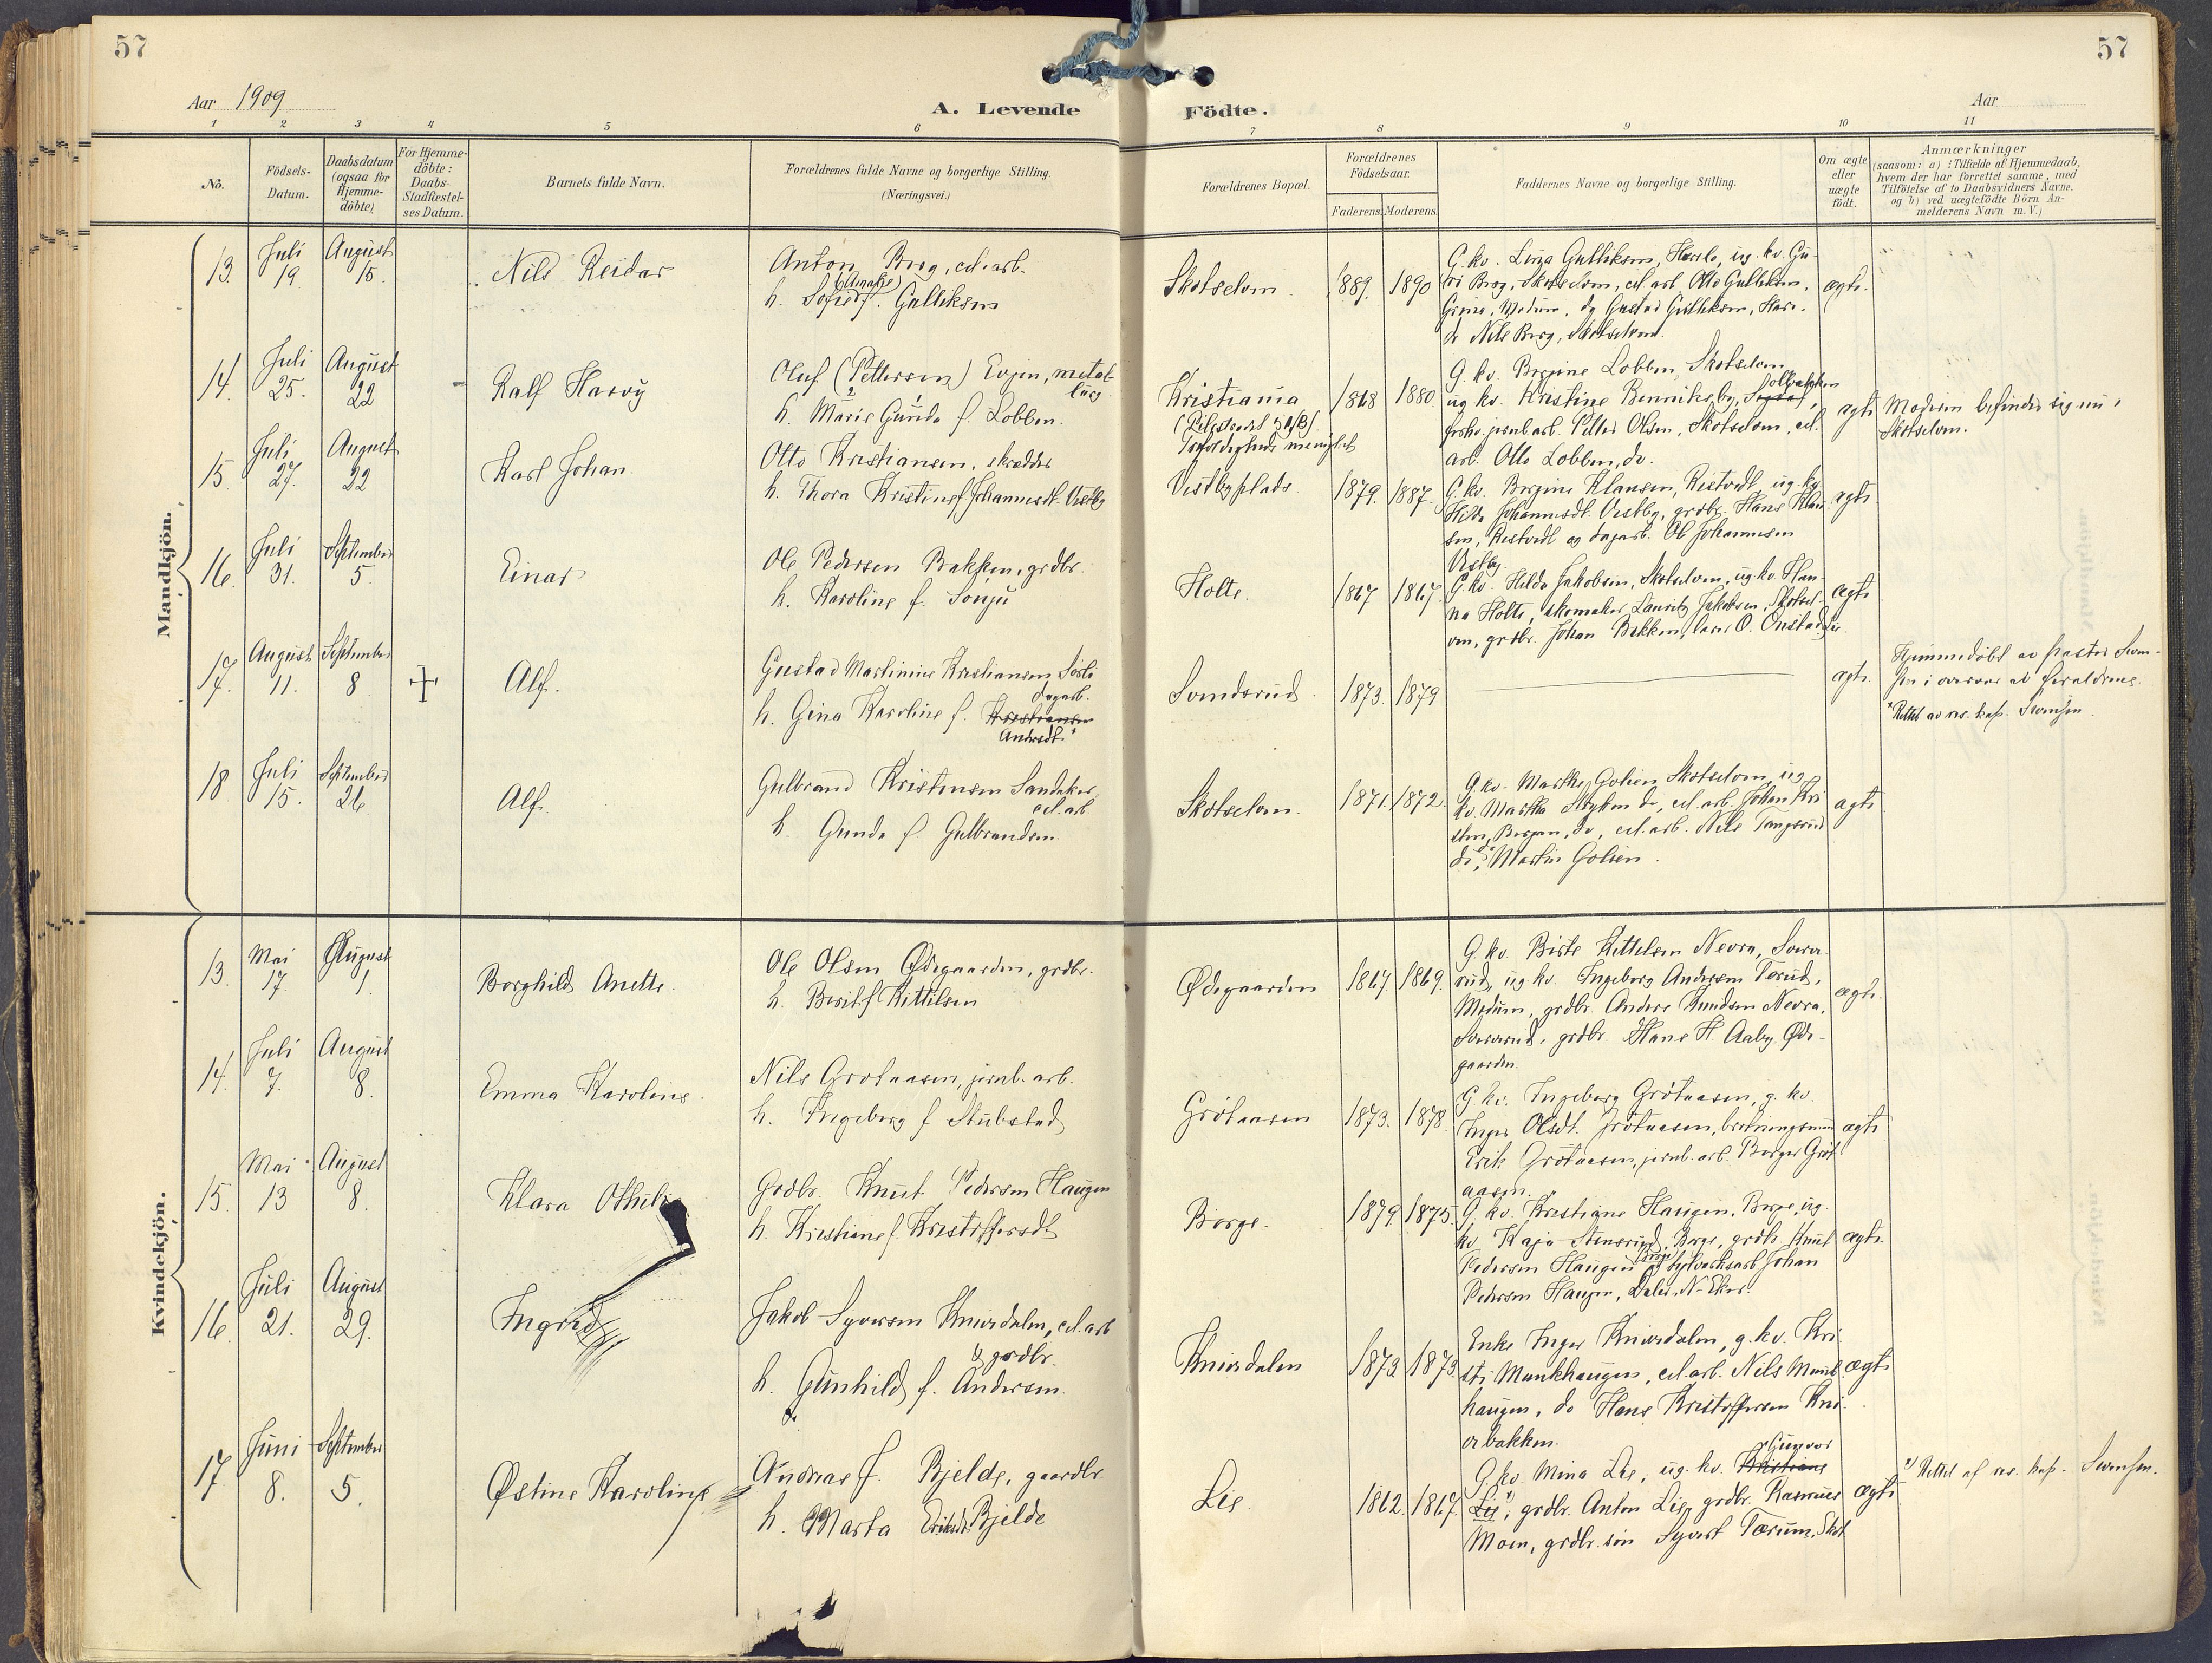 57
57
Aar 1909
A. Levende
Födte.
Aar
1 2 3 4 5 6 7 8 9 10 11
No.
Födsels-
Datum.
Daabsdatum
(ogsaa for
Hjemme-
döbte)
For Hjemme-
döbte:
Daabs-
Stadfæstel-
ses Datum.
Barnets fulde Navn.
Forældrenes fulde Navne og borgerlige Stilling.
(Næringsvei.)
Forældrenes Bopæl.
Forældrenes
Födselsaar.
Faderens. Moderens.
Faddernes Navne og borgerlige Stilling.
Om ægte
eller
uægte
födt.
Anmærkninger
(saasom: a) : Tilfælde af Hjemmedaab,
hvem der har forrettet samme, med
Tilföielse af to Daabsvidners Navne.
og b) ved uægtefödte Börn An-
melderens Navn m. V.)
Mandkjön.
13. Juli 19. August 15.
Nils Reidar
Anton Borg, cel. arb.
h. Sofie Amalie f. Gulliksen
Skotselven. 1889. 1890
G. kv. Lina Gulliksen, ug. kv. Gu-
ri Borg, Skotselven, cel. arb. Otto Gulliksen,
Modum, Gustav Gulliksen,
Nils Borg, Skotselven.
ægte.
14. Juli 25. August 22
Ralf Harry
Oluf (Pettersen) Evjen, metal-
h. Marie Gunda f. Lobben.
Kristiania
Trefoldigheds menighet
1868 1880
G. kv. Bergine Lobben, Skotselven
ug kv. Kristine Benniksby, Solbakken
jernb. arb. Petter Olsen, Skotselven, cel.
arb. Otto Lobben, do.
ægte
Moderen befinder sig nu i
Skotselven.
15. Juli 27. August 22
Karl Johan.
Otto Kristiansen, skrædder
h. Thora Kristine f. Johannesdt. Vestby
Vestbyplads. 1879. 1887.
G. kv. Bergine Klausen, Ristvedt, ug. kv.
Hilda Johannesdt. Vestby, grdbr. Hans Klau-
sen, Ristvedt og dagarb. Ole Johannesen
Vestby.
ægte
16. Juli 31. September 5.
Einar
Ole Pedersen Bakken, grdbr.
h. Karoline f. Sonju
Holte. 1867 1867.
G. kv. Hilda Jakobsen, Skotselven, ug. kv. Han-
na Holte, skomaker Lauritz Jakobsen, Skotsel-
ven, grdbr. Johan Bakken, O. Onstad
ægte
17. August 11. September 8
Alf.
Gustav Martinius Kristiansen
dagarb.
h. Gina Karoline f. Kristiansen
Andersdt.*
Semdsrud. 1873. 1879
ægte.
Hjemmedöbt av pastor Svend-
sen i overvær av forældrene.
* Rettet av res. kap. Svendsen.
18 Juli 15. September 26
Alf.
Gulbrand Kristensen Sandaker,
cel. arb
h. Gunda f. Gulbrandsen.
Skotselven. 1871. 1872.
G. kv. Marthe Golien, Skotselven, ug
kv. Martha do, cel. arb. Johan Kri
do, cel. arb. Nils
do, Martin Golien.
ægte
Kvindekjön.
13. Mai 17. August 1.
Borghild Anette.
Ole Olsen Ødegaarden, grdbr.
h. Berit f. Kittilsen
Ødegaarden 1867. 1869.
G. kv. Birte Kittilsen Nevra,
ug kv. Ingeborg Andersen
Modum, grdbr. Anders Knudsen Nevra,
grdbr. Hans H. Aaby, Øde-
gaarden.
ægte.
14. Juli 7. August 8.
Emma Karoline.
Nils Grotaasen, jernb. arb.
h. Ingeborg f. Stubstad
Grötaasen 1873. 1878.
G kv. Ingeborg Grötaasen, g. kv.
Inger Olsdt. Grötaasen,
Erik Grötaasen, jernb. arb. Borger Gröt-
aasen.
ægte
15. Mai 13 August 8.
Klara Othelie
Grdbr. Knut Pedersen Haugen
h. Kristiane f. Kristoffersdt
Berge. 1879 1875.
G. kv. Kristiane Haugen, Berge, ug.
kv. Kaja Stensrud, Berge, grdb. Knut
Pedersen Haugen Berge, Sølverksarb. Johan
Pedersen Haugen, N-Eker.
ægte.
16. Juli 21. August 29.
Ingrid
Jakob Syversen Kniverdalen, cel. arb
& grdbr.
h. Gunhild f. Andersen.
Kniverdalen 1873 1873
Enke Inger Kniverdalen, g. kv. Kri
sti Munkhaugen, cel. arb. Nils Munk-
haugen, do Hans Kristoffersen Kni-
verbakken.
ægte
17. Juni 8. September 5.
Østine Karoline
Andreas f. Bjelde, gaardbr.
h. Marta Eriksdt. Bjelde
Lie. 1862. 1867.
G. kv. Mina Lie, ug. kv. Kristiane
Gunvor
Lie, grdbr. Anton Lie, grdbr. Rasmus
Moen, grdbr. sön Syvert
ægte
Rettet af res. kap. Svendsen.